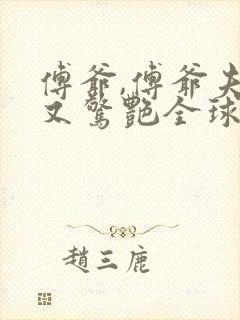 傅爺,傅爺夫
又驚艷全球
趙三鹿